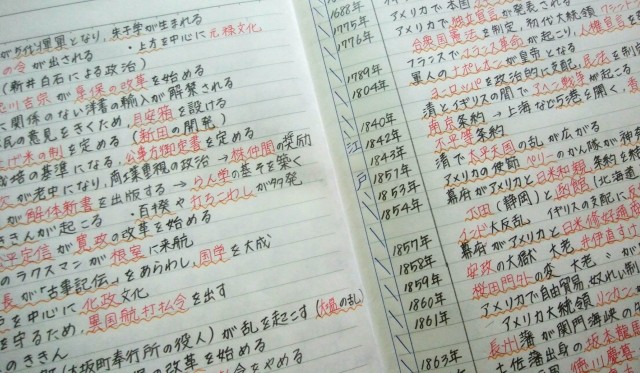 が5代将軍となり、朱子学が生まれる
の令が出される ・上方を中心に元禄文化
(新井白石による政治)
川吉宗が享保の改革を始める
に関係のない洋書の輸入が解禁される
民の意見をきくため、目安箱を設ける
げ米の制を定める(新田の開発)
裁の基準になる、公事方御定書を定める
が老中になり、商工業重視の政治 → 株仲間の奨励
が解体新書を出版する → らん学の基そを築く
ききんが起こる ・百姓や打ちこわしが多発
平定信が寛政の改革を始める
のラクスマンが根室に来航
長が「古事記伝」をあらわし、国学を大成
を中心に化政文化
を守るため、異国船打払令を出す
のききん
(大坂町奉行所の役人)が乱を起こす(大塩の乱)
の改革を始める
令をやめる
江戸
1688年
1775年
1776年
1789年
1804年
1840年
1842年
1843年
1857年
1853年
1854年
1857年
1858年
1859年
1860年
1861年
1863年
アメリカで本国
アメリカで独立宣言が発表される
合衆国憲法を制定、初代大統領
フランスでフランス革命が起こり、人権宣言
軍人のナポレオンが皇帝となる
ヨーロッパを政治的に支配、法を制
清とイギリスの間でアヘン戦争が起こる
南京条約 → 上海など5港を開く、
不平等条約
清で太平天国の乱が広がる
アメリカの使節ペリーのかん隊が神
幕府がアメリカと日米和親条約を結
下田(静岡)と函館(北海道
インド大反乱 イギリスの支配に
幕府がアメリカと日米修好通商
安政の大獄 大老 井伊直すけ
桜田門外の変 大老 が
アメリカで自由貿易、奴れい制
アメリカ大統領リンカン
長州藩が関門海峡の
土佐藩出身の坂本龍
徳川慶喜